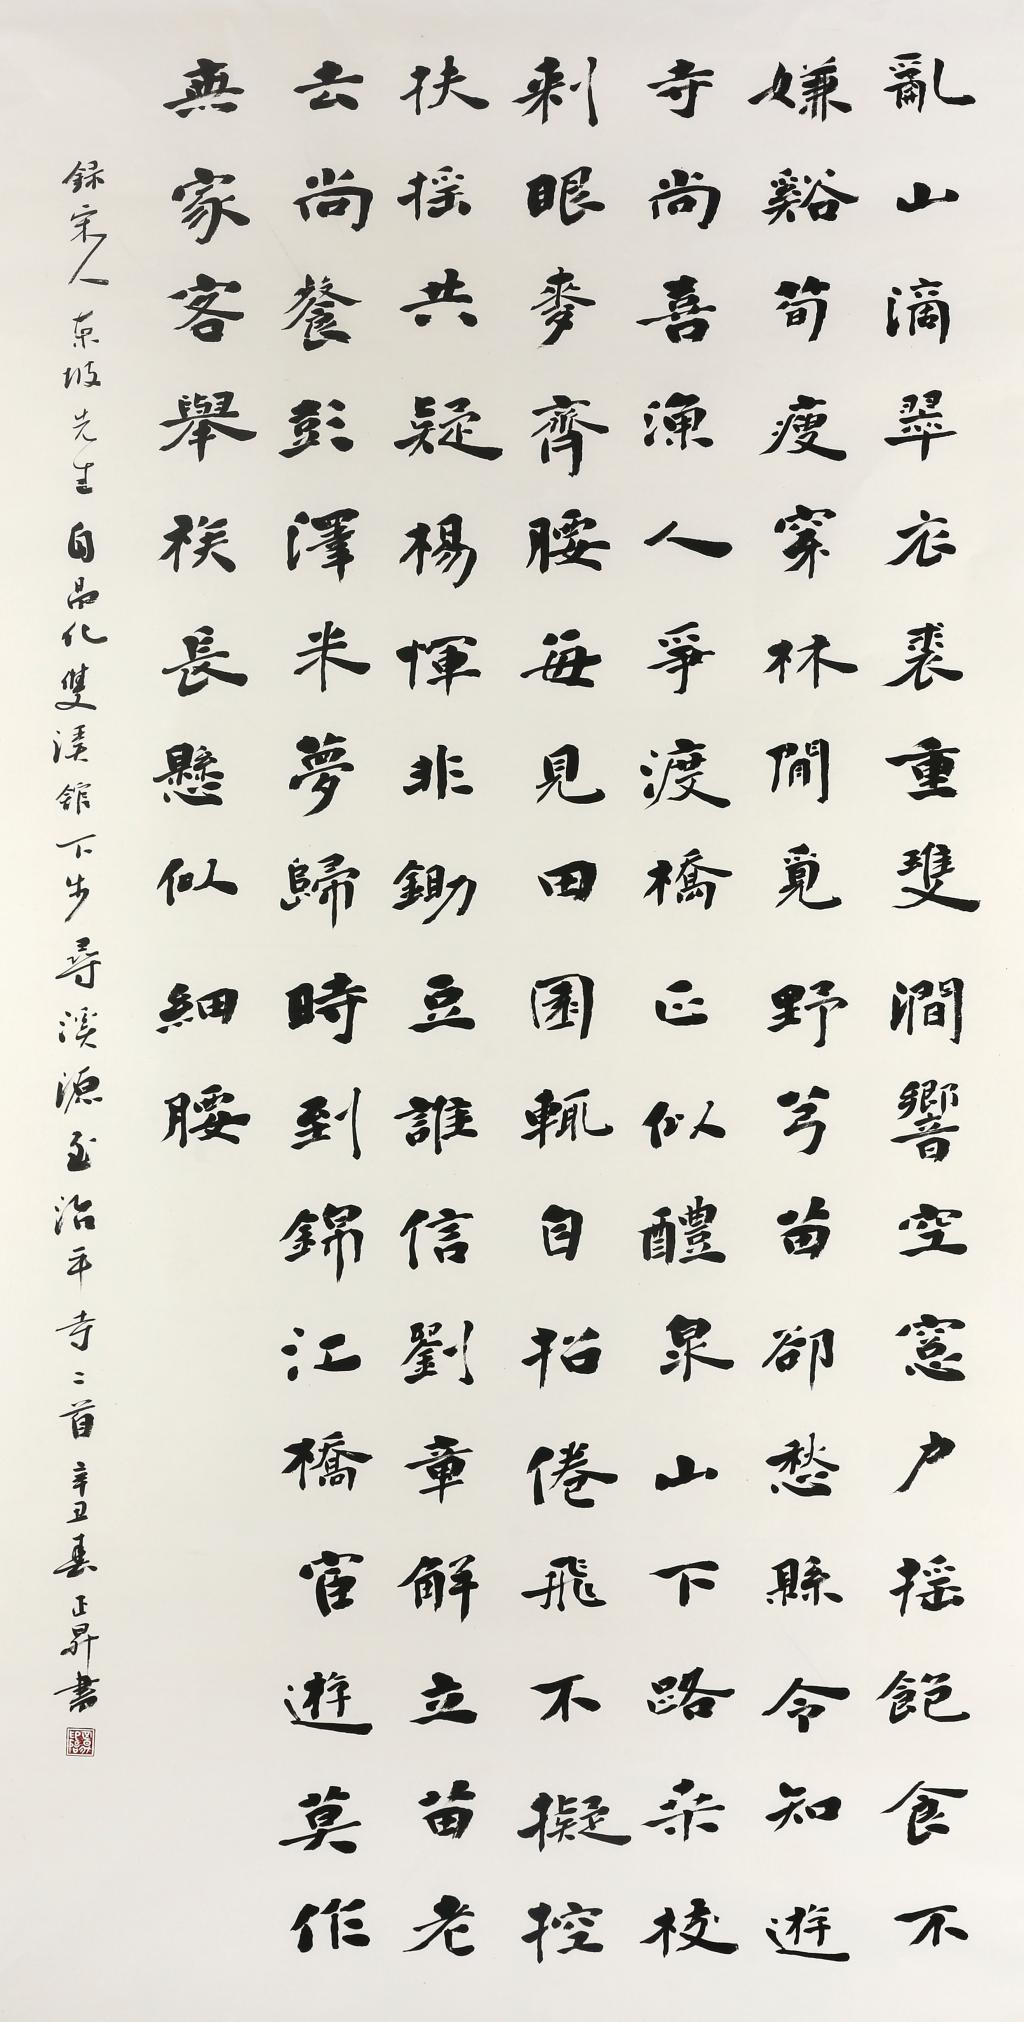 亂山滴翠衣裘重雙澗響空窻户摇飽食不
嫌谿筍瘦穿林閒覓野芎苗卻愁縣令知遊
寺尚喜漁人爭渡橋正似醴泉山下路桑校
刺眼麥齊腰每見田園輒自招倦飛不擬控
扶摇共疑楊惲非鋤豆誰信劉章解立苗老
去尚餐彭澤米夢歸時到錦江橋宦遊莫作
無家客舉族長懸似細腰
録宋人東坡先生自昌化雙溪館下步尋溪源至治平寺二首辛丑春正昇書